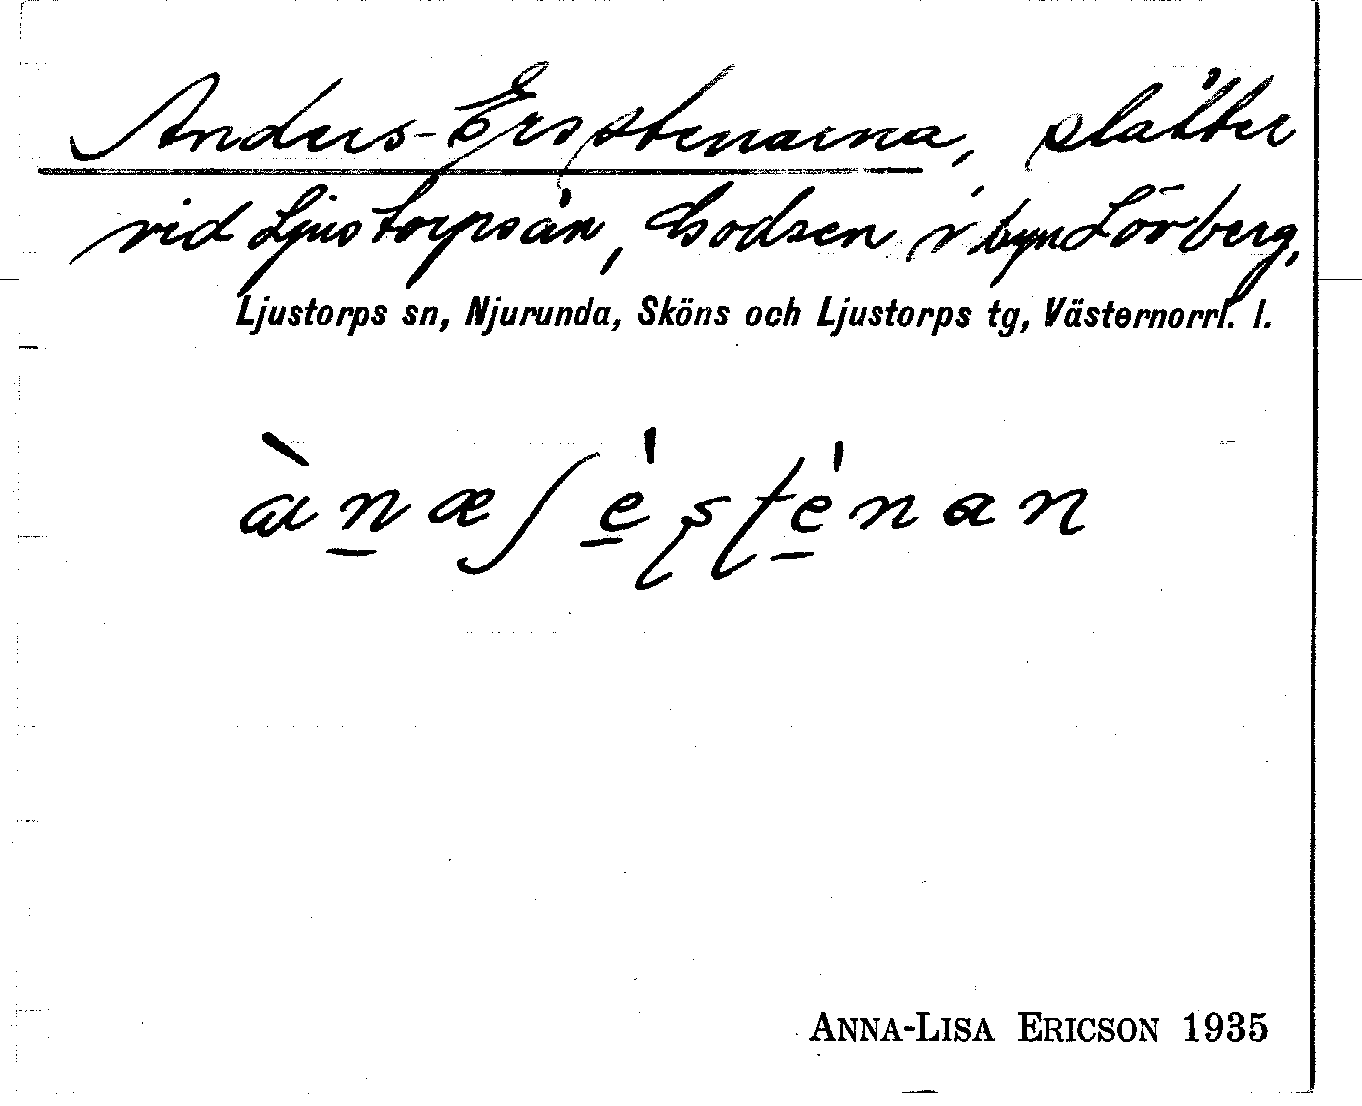 Anders-Ersstenarna, slåtter
vid Ljustorpsån, bodsen i byn Lörberg,
Ljustorps sn, Njurunda, Sköns och Ljustorps tg, Västernorrl. l.
ANNA-LISA ERICSON 1935